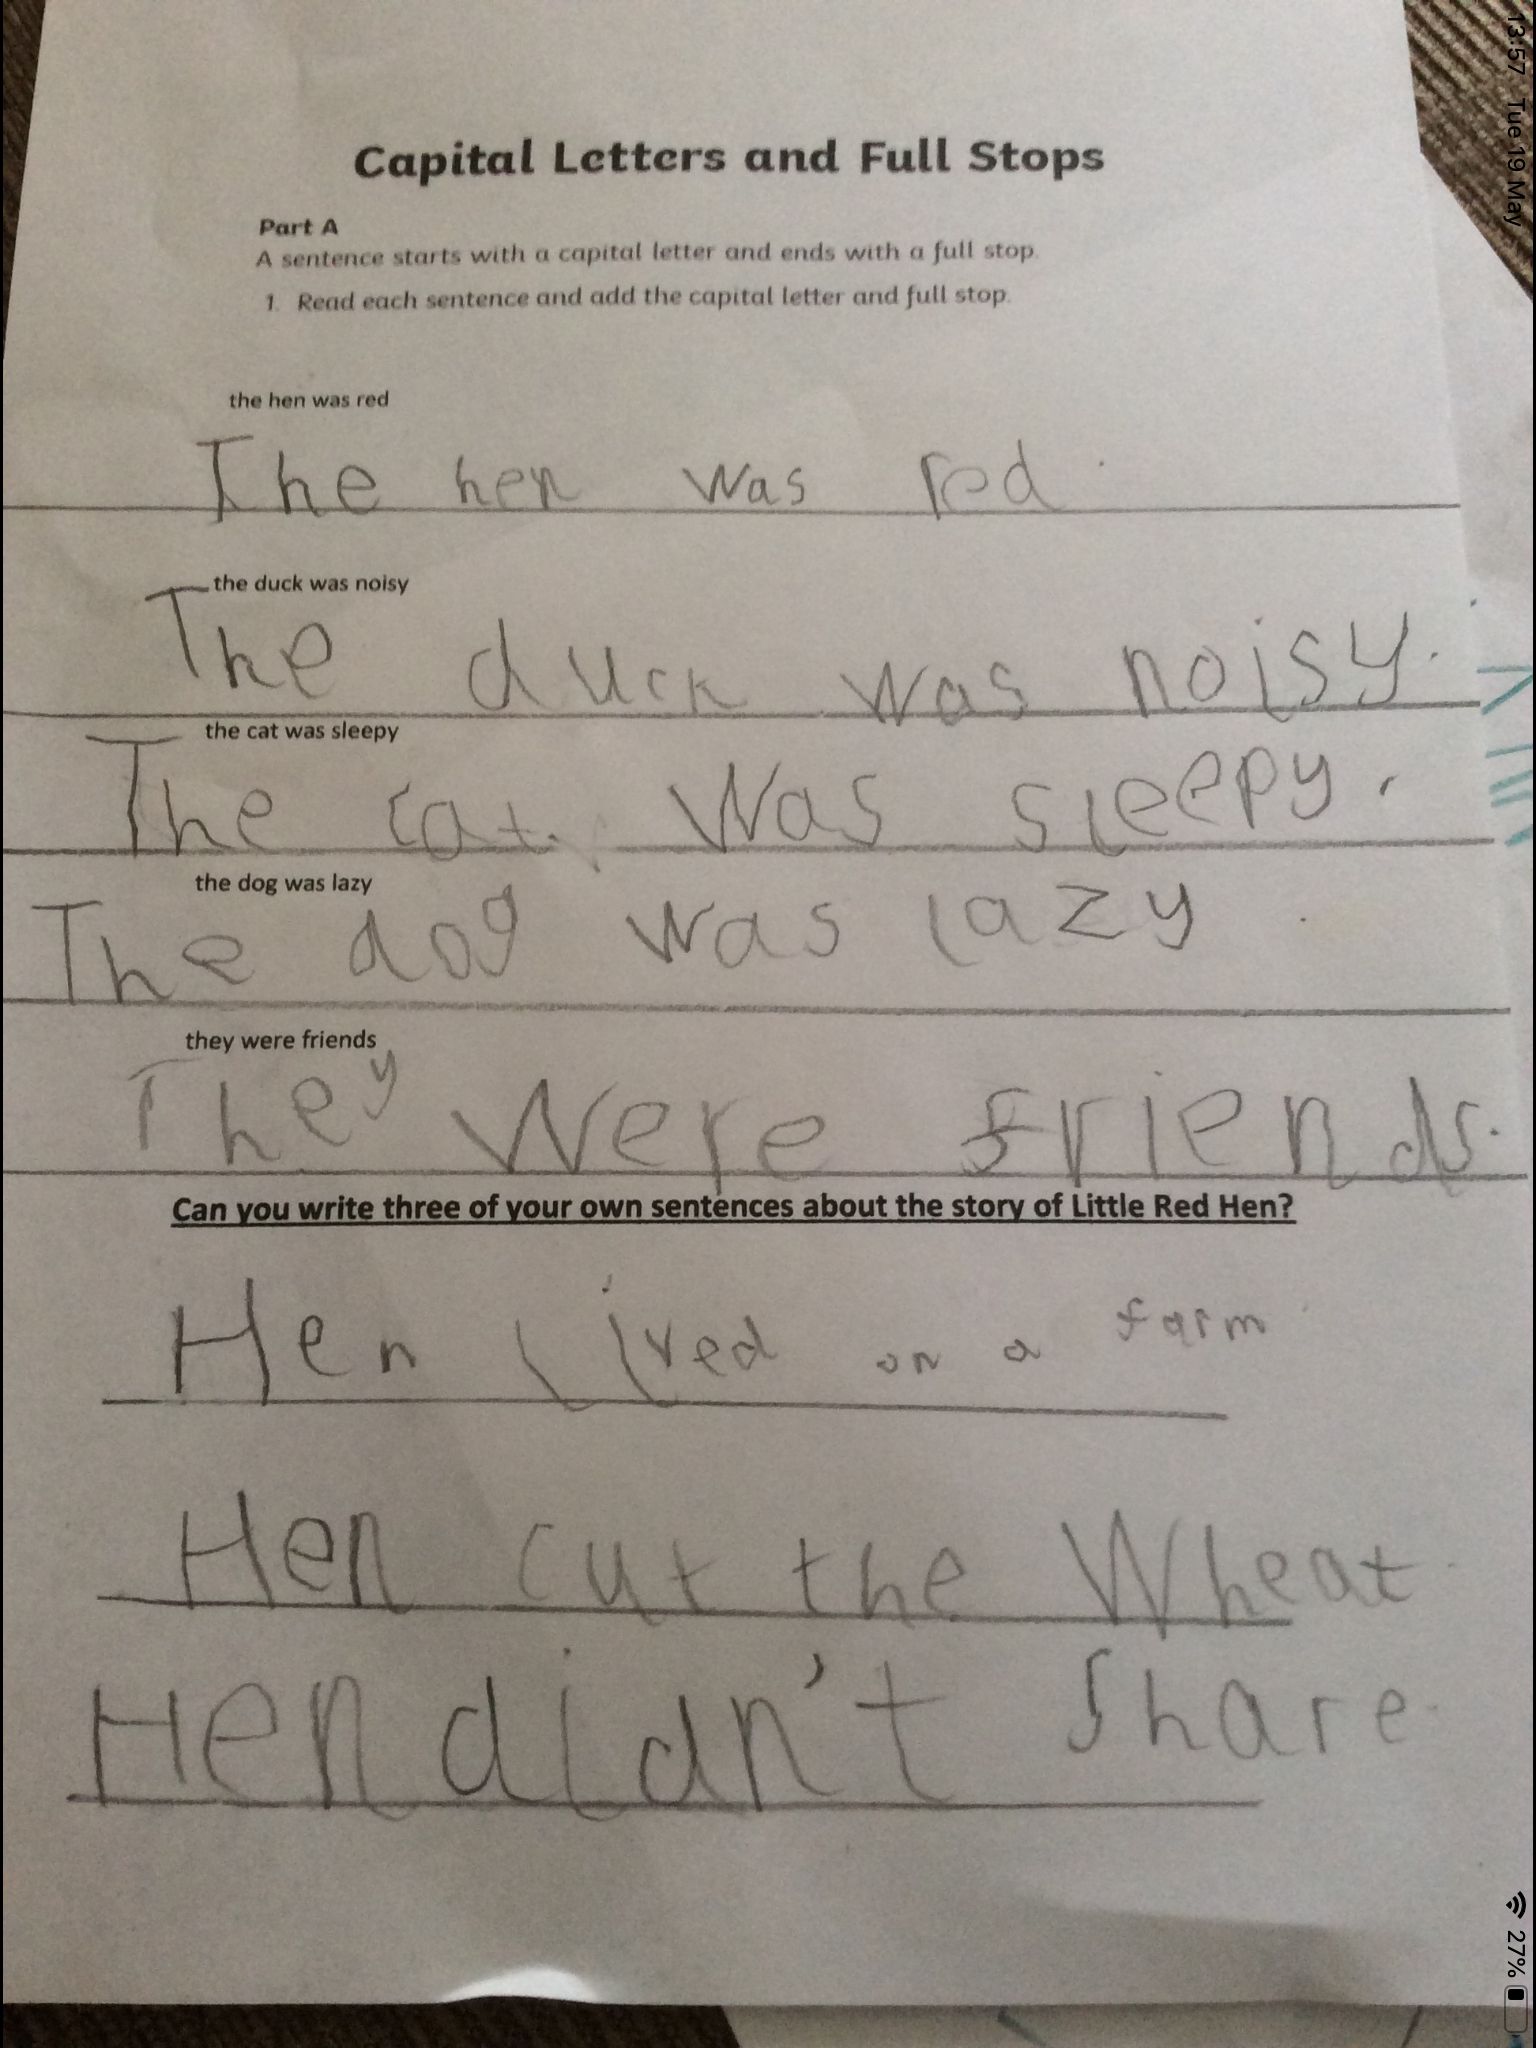 Capital Letters and Full Stops
Part A
A sentence starts with a capital letter and ends with a full stop.
1. Read each sentence and add the capital letter and full stop.
the hen was red
The hen was red.
the duck was noisy
The duck was noisy.
the cat was sleepy
The cat. was sleepy.
the dog was lazy
The dog was lazy.
they were friends
They were friends.
Can you write three of your own sentences about the story of Little Red Hen?
Hen lived on a farm.
Hen cut the Wheat.
Hen didn't Share.
13:57 Tue 19 May
27%